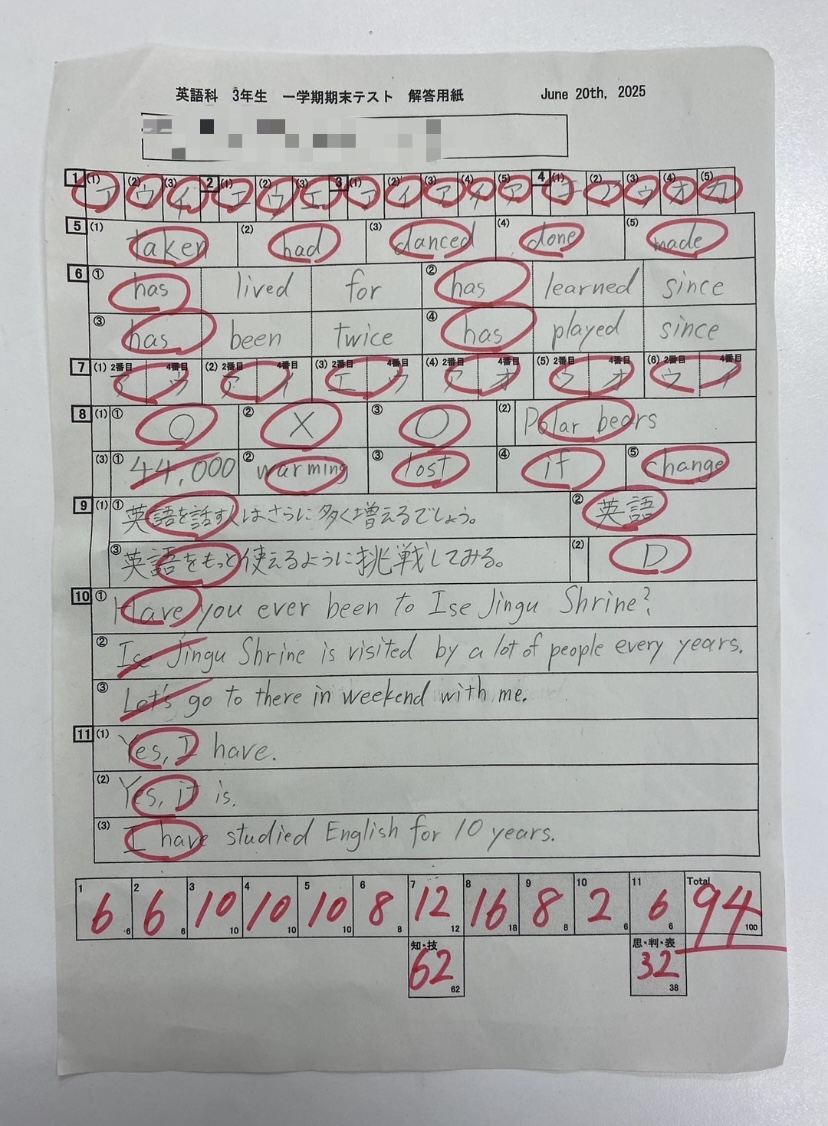 英語科 3年生 一学期期末テスト 解答用紙 June 20th, 2025
1 (1) ア (2) ウ (3) イ 2 (1) エ (2) ウ (3) エ 3 (1) ア (2) イ (3) ア (4) イ (5) ア 4 (1) (2) ア (3) ウ (4) オ (5) カ
5 (1) taken (2) had (3) danced (4) done (5) made
6 ① has lived for ② has learned since
③ has been twice ④ has played since
7 (1) 2番目 4番目 (2) 2番目 4番目 (3) 2番目 4番目 (4) 2番目 4番目 (5) 2番目 4番目 (6) 2番目 4番目
ア ウ ア イ エ ウ ア オ ウ オ ウ イ
8 (1) ① ○ ② X ③ ○ (2) Polar bears
(3) ① 44,000 ② warming ③ lost ④ if ⑤ change
9 (1) ① 英語を話す人はさらに多く増えるでしょう。 ② 英語
③ 英語をもっと使えるように挑戦してみる。 (2) D
10 ① Have you ever been to Ise Jingu Shrine?
② Ise Jingu Shrine is visited by a lot of people every years.
③ Let's go to there in weekend with me.
11 (1) Yes, I have.
(2) Yes, it is.
(3) I have studied English for 10 years.
1 2 3 4 5 6 7 8 9 10 11 Total
6 6 10 10 10 8 12 16 8 2 6 94
6 6 10 10 10 8 12 16 8 6 6 100
知・技 思・判・表
62 32
62 38